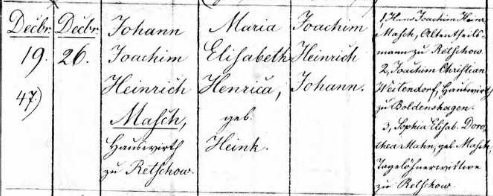 Decbr.
19.
47)
Decbr.
26.
Johann
Joachim
Heinrich
Masch,
Hauswirth
zu Retschow.
Maria
Elisabeth
Henrica,
geb.
Heink.
Joachim
Heinrich
Johann.
1, Hans Joachim Heinr.
Masch, Altentheils-
mann zu Retschow
2, Joachim Christian
Westendorf, Hauswirth
zu Boldenshagen.
3, Sophia Elisab. Doro-
thea Mahn, geb. Masch,
Tagelöhnerwittwe
zu Retschow